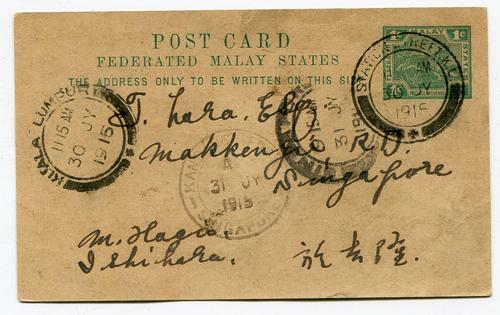 POST CARD
FEDERATED MALAY STATES
THE ADDRESS ONLY TO BE WRITTEN ON THIS SI
1c MALAY 1c
STATES
AM
JY
1915
KUALA LUMPUR
11 15 AM
30 JY
1915
T. hara. Esq
Makkenzie RD.
Singapore
31 JY
1915
A
31 JY
1915
M. Hagi
Ishihara.